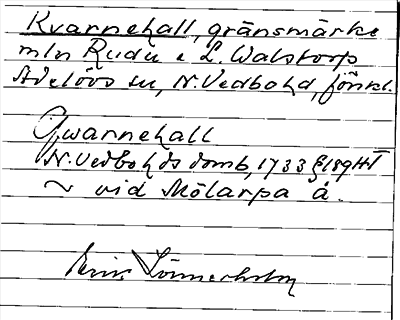 Kvarnehall, gränsmärke
mln Rudu o L. Walstorp
Adelövs sn, N. Vedbo hd, Jönkl.
Qwarnehall
N. Vedbo hds domb, 1733 § 189 HT
~ vid Mölarpa å.